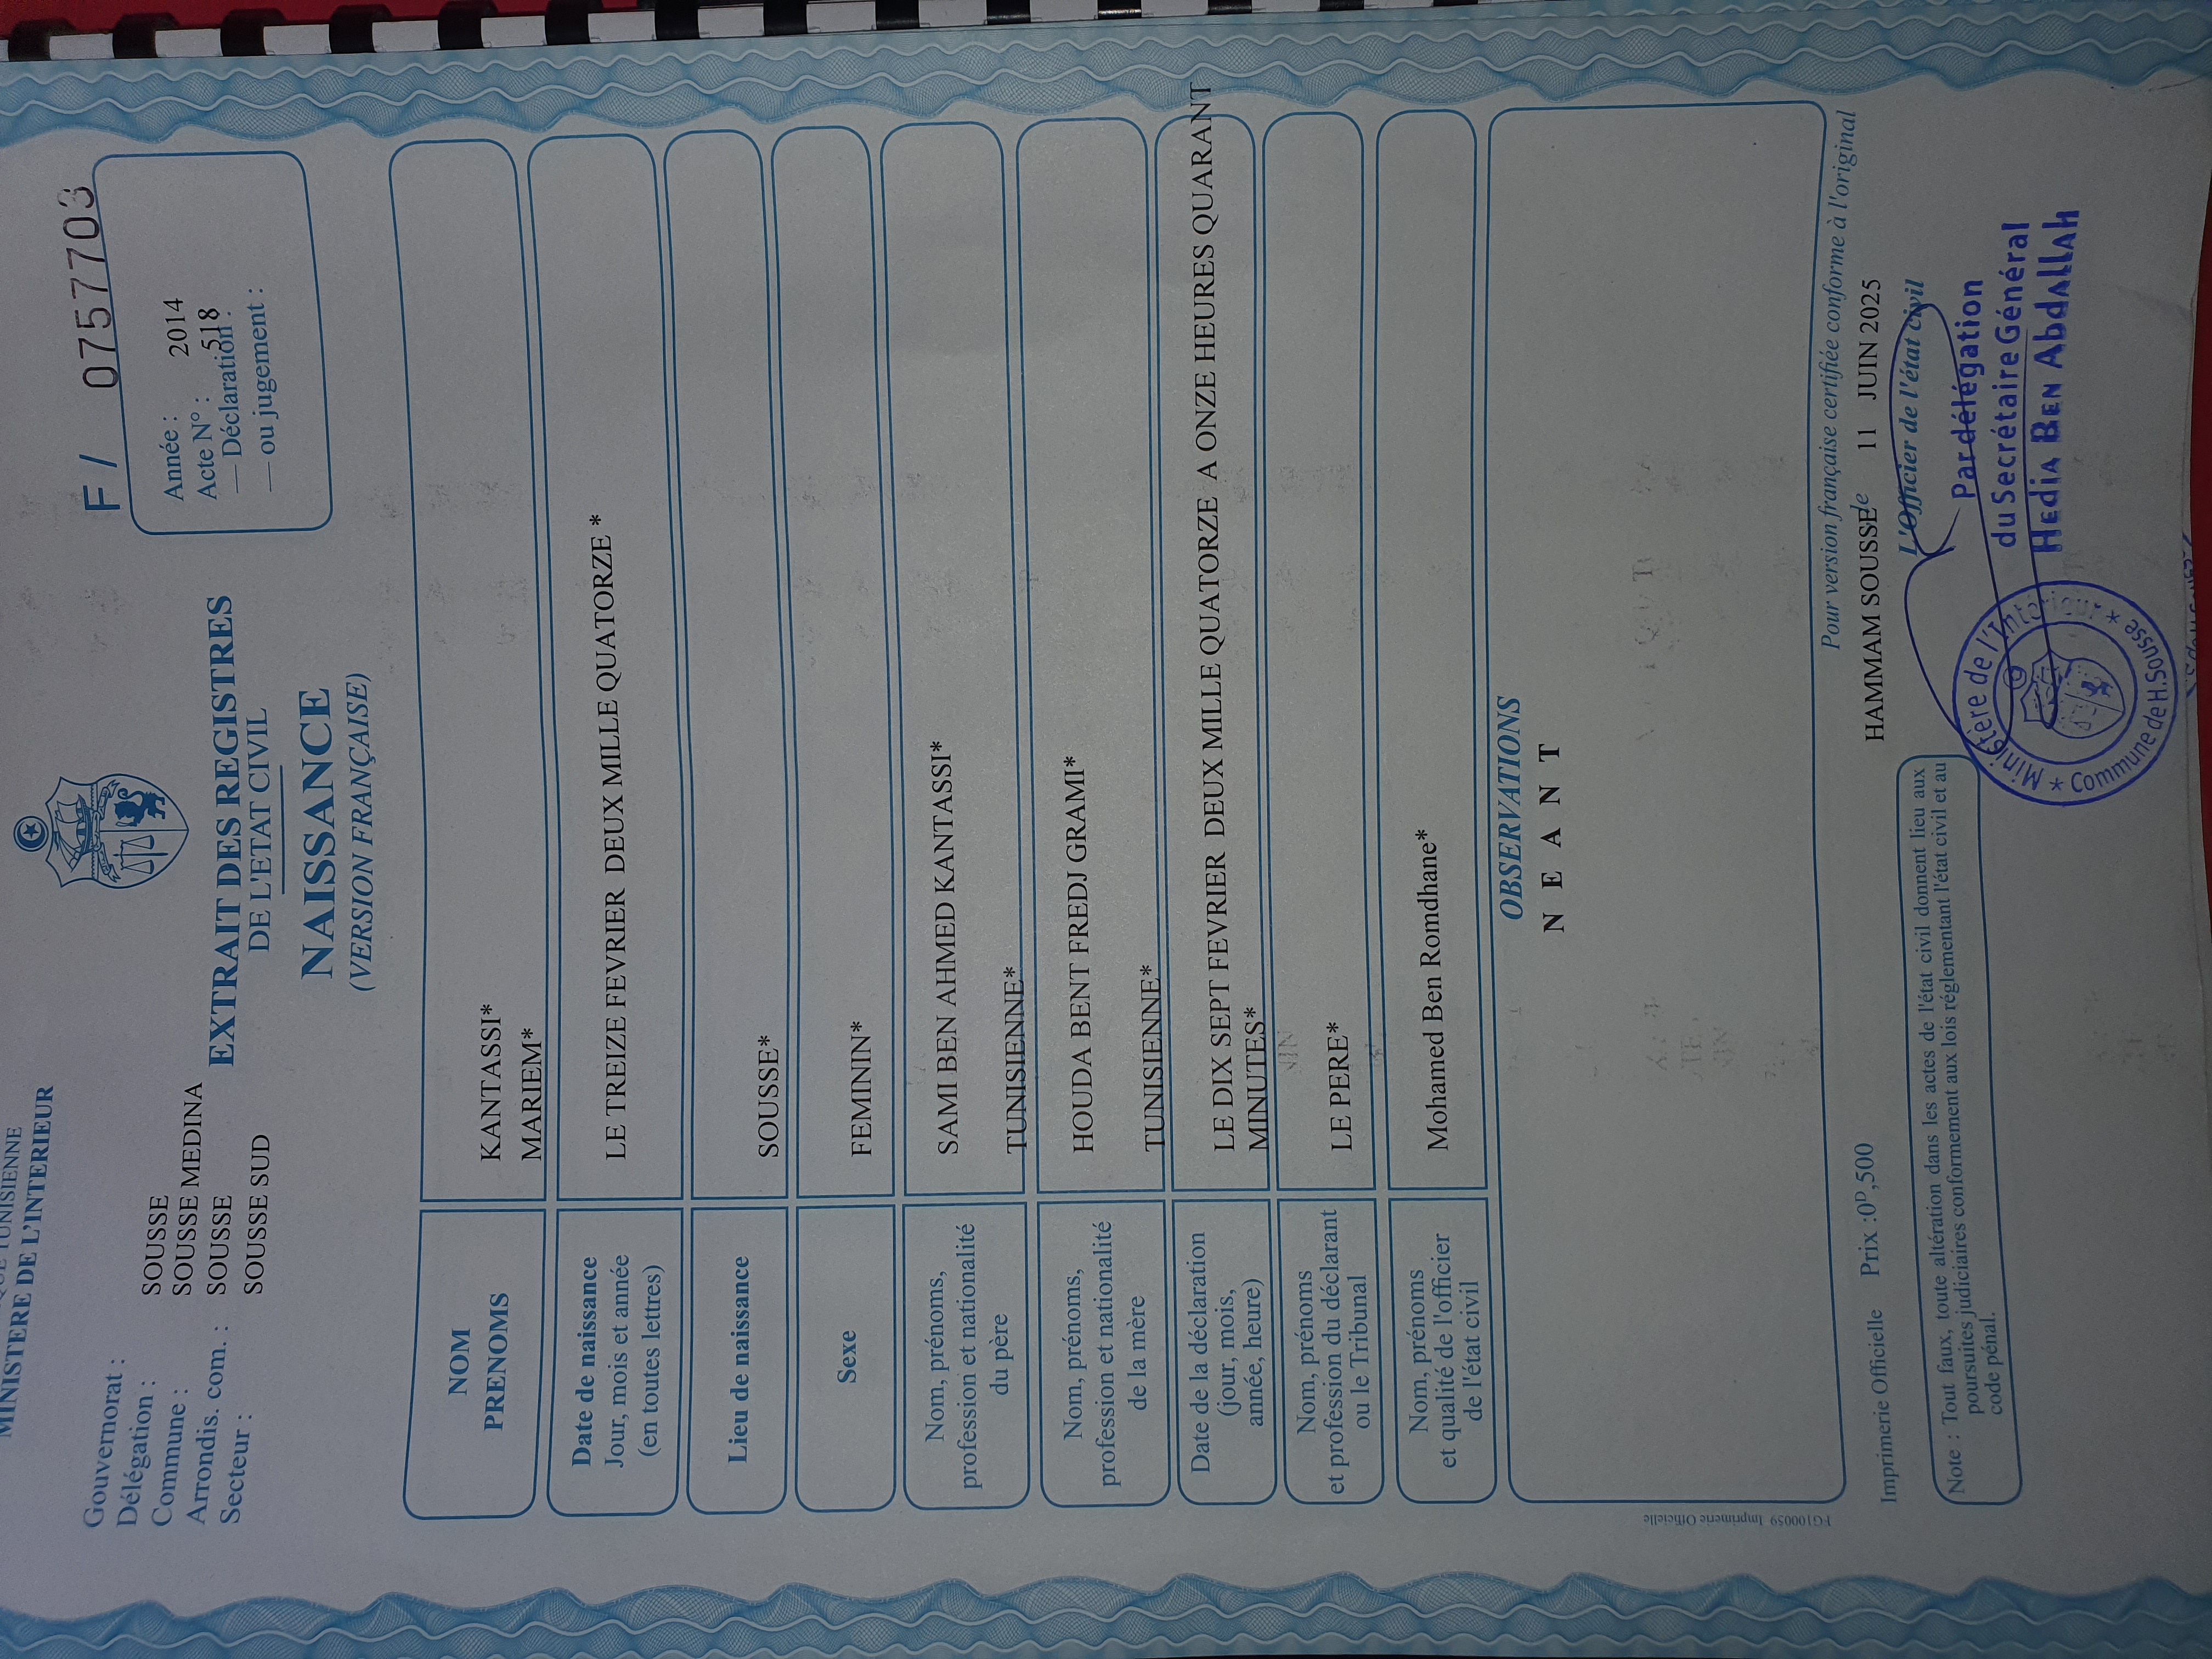 TUNISIENNE
MINISTERE DE L'INTERIEUR
Gouvernorat : SOUSSE
Délégation : SOUSSE MEDINA
Commune : SOUSSE
Arrondis. com. : SOUSSE SUD
Secteur :
EXTRAIT DES REGISTRES
DE L'ETAT CIVIL
NAISSANCE
(VERSION FRANÇAISE)
F / 0757703
Année : 2014
Acte N° : 518
— Déclaration :
— ou jugement :
NOM
PRENOMS
KANTASSI*
MARIEM*
Date de naissance
Jour, mois et année
(en toutes lettres)
LE TREIZE FEVRIER DEUX MILLE QUATORZE *
Lieu de naissance
SOUSSE*
Sexe
FEMININ*
Nom, prénoms,
profession et nationalité
du père
SAMI BEN AHMED KANTASSI*
TUNISIENNE*
Nom, prénoms,
profession et nationalité
de la mère
HOUDA BENT FREDJ GRAMI*
TUNISIENNE*
Date de la déclaration
(jour, mois,
année, heure)
LE DIX SEPT FEVRIER DEUX MILLE QUATORZE A ONZE HEURES QUARANT
MINUTES*
Nom, prénoms
et profession du déclarant
ou le Tribunal
LE PERE*
Nom, prénoms
et qualité de l'officier
de l'état civil
Mohamed Ben Romdhane*
OBSERVATIONS
N E A N T
FG100059 Imprimerie Officielle
Pour version française certifiée conforme à l'original
Imprimerie Officielle Prix :0ᴰ,500
HAMMAM SOUSSE le 11 JUIN 2025
L'Officier de l'état civil
Note : Tout faux, toute altération dans les actes de l'état civil donnent lieu aux
poursuites judiciaires conformément aux lois réglementant l'état civil et au
code pénal.
Par délégation
du Secrétaire Général
Hedia Ben Abdallah
Ministère de l'Intérieur
* Commune de H.Sousse *